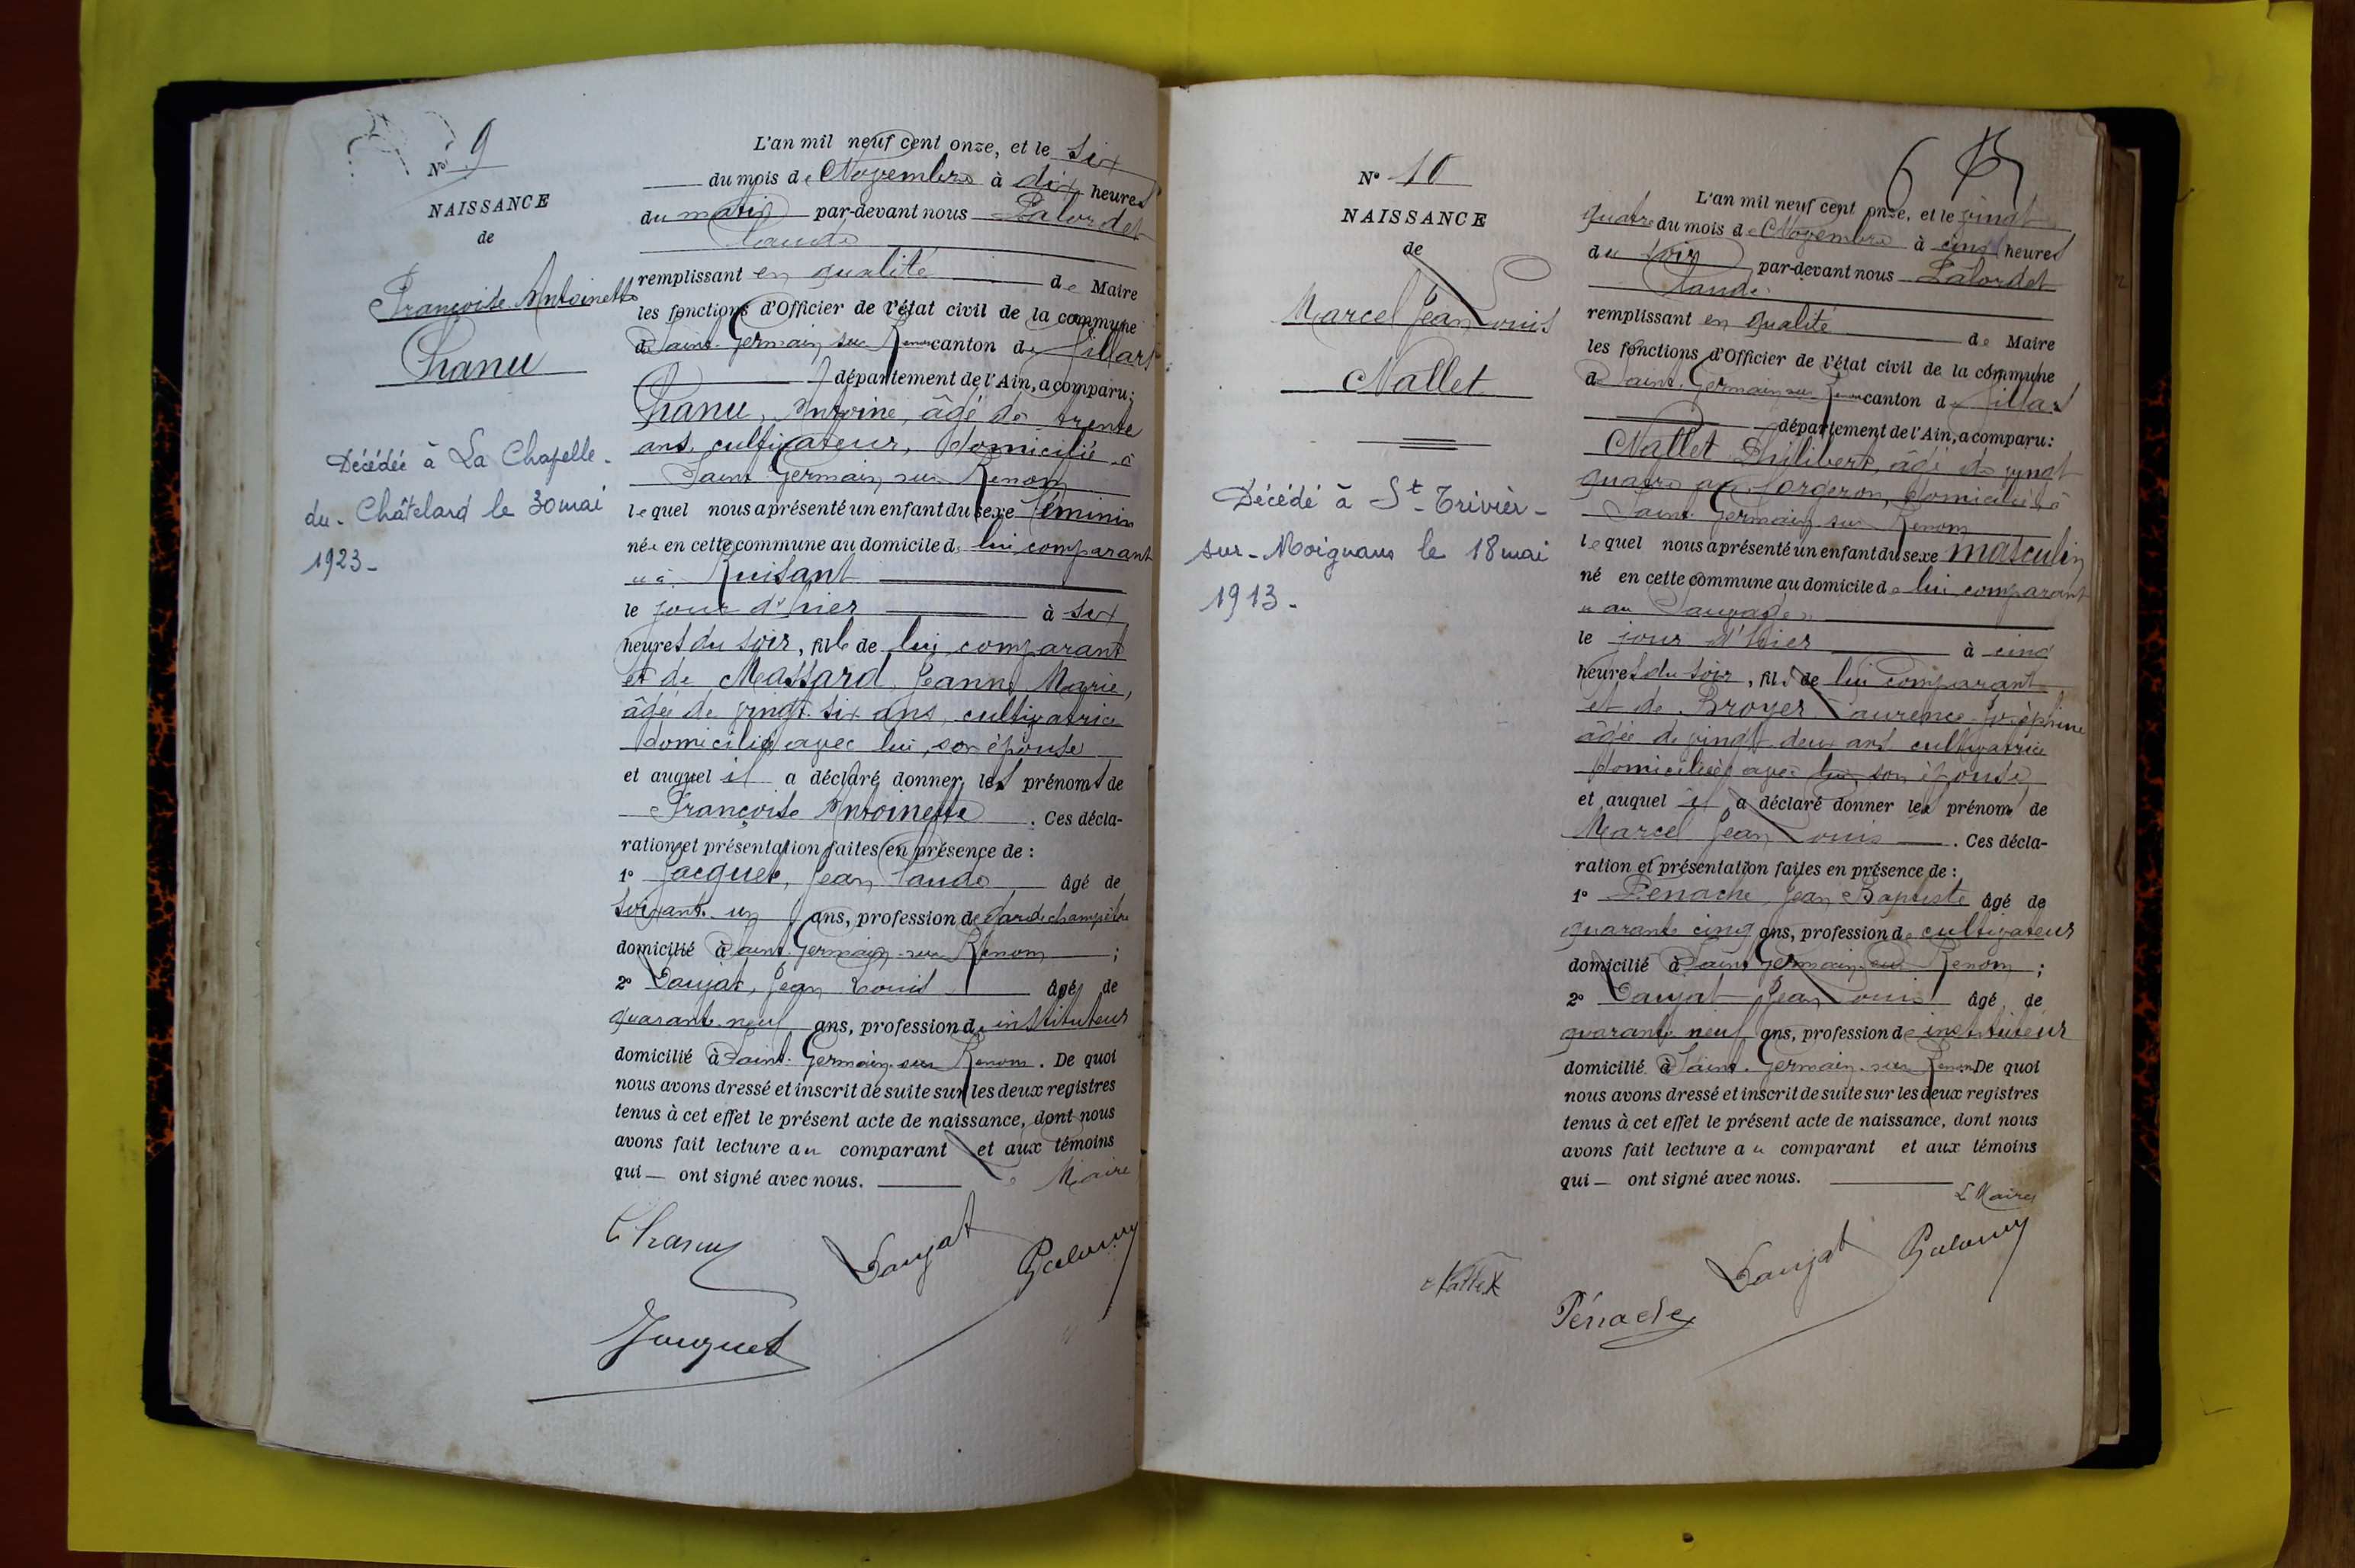 N° 9
NAISSANCE
de
Françoise Antoinette
Chanu
Décédée à La Chapelle-
du-Châtelard le 30 mai
1923-
L'an mil neuf cent onze, et le six
du mois de Novembre à dix heures
du matin par-devant nous Palordet
Claude
remplissant en qualité de Maire
les fonctions d'Officier de l'état civil de la commune
de Saint-Germain sur Renom canton de Villars
département de l'Ain, a comparu:
Chanu, Antoine, âgé de trente
ans, cultivateur, domicilié à
Saint Germain sur Renom
lequel nous a présenté un enfant du sexe féminin
née en cette commune au domicile de lui comparant
Ruisant
le jour d'hier à six
heures du soir, fille de lui comparant
et de Massard Jeanne Marie,
âgée de vingt-six ans, cultivatrice
domiciliée avec lui, son épouse
et auquel il a déclaré donner les prénoms de
Françoise Antoinette. Ces décla-
ration et présentation faites en présence de :
1° Jacquet, Jean Claude âgé de
soixante un ans, profession de Garde champêtre
domicilié à Saint-Germain-sur Renom ;
2° Daujat, Jean Louis âgé de
quarante neuf ans, profession de instituteur
domicilié à Saint-Germain-sur Renom. De quoi
nous avons dressé et inscrit de suite sur les deux registres
tenus à cet effet le présent acte de naissance, dont nous
avons fait lecture au comparant et aux témoins
qui — ont signé avec nous. Le Maire
Chanu Daujat
N° 10
NAISSANCE
de
Marcel Jean Louis
Nallet
Décédé à St-Trivier-
sur-Moignans le 18 mai
1913-
6
L'an mil neuf cent onze, et le vingt
quatre du mois de Novembre à cinq heures
du soir par-devant nous Palordet
Claude
remplissant en qualité de Maire
les fonctions d'Officier de l'état civil de la commune
de Saint-Germain sur Renom canton de Villars
département de l'Ain, a comparu:
Nallet Philibert, âgé de vingt
quatre ans forgeron, domicilié à
Saint Germain sur Renom
lequel nous a présenté un enfant du sexe masculin
né en cette commune au domicile de lui comparant
au Sauvage
le jour d'hier à cinq
heures du soir, fils de lui comparant
et de Broyer Laurence Joséphine
âgée de vingt-deux ans cultivatrice
domiciliée avec lui son épouse
et auquel il a déclaré donner les prénoms de
Marcel Jean Louis. Ces décla-
ration et présentation faites en présence de :
1° Penache, Jean Baptiste âgé de
quarante cinq ans, profession de cultivateur
domicilié à Saint Germain sur Renom ;
2° Daujat Jean Louis âgé de
quarante neuf ans, profession de instituteur
domicilié à Saint-Germain-sur Renom. De quoi
nous avons dressé et inscrit de suite sur les deux registres
tenus à cet effet le présent acte de naissance, dont nous
avons fait lecture au comparant et aux témoins
qui — ont signé avec nous.
Le Maire
Nallet Daujat
Pénache